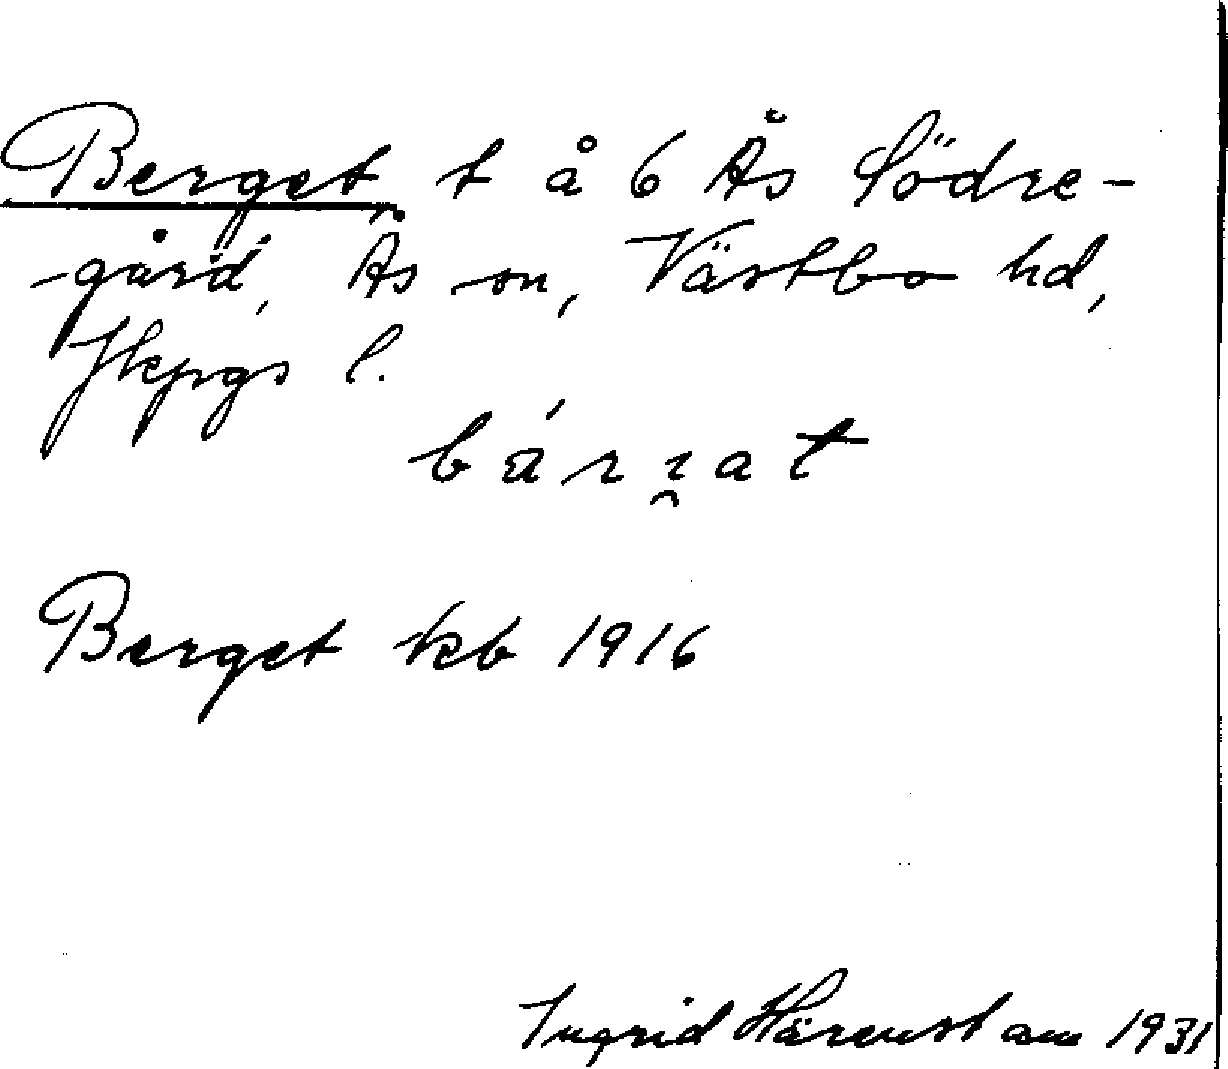 Berget, t å 6 Ås Södre-
gård, Ås sn, Västbo hd,
Jkpgs l.
bárɪ̯at
Berget kb 1916
Ingrid Härenstam 1931